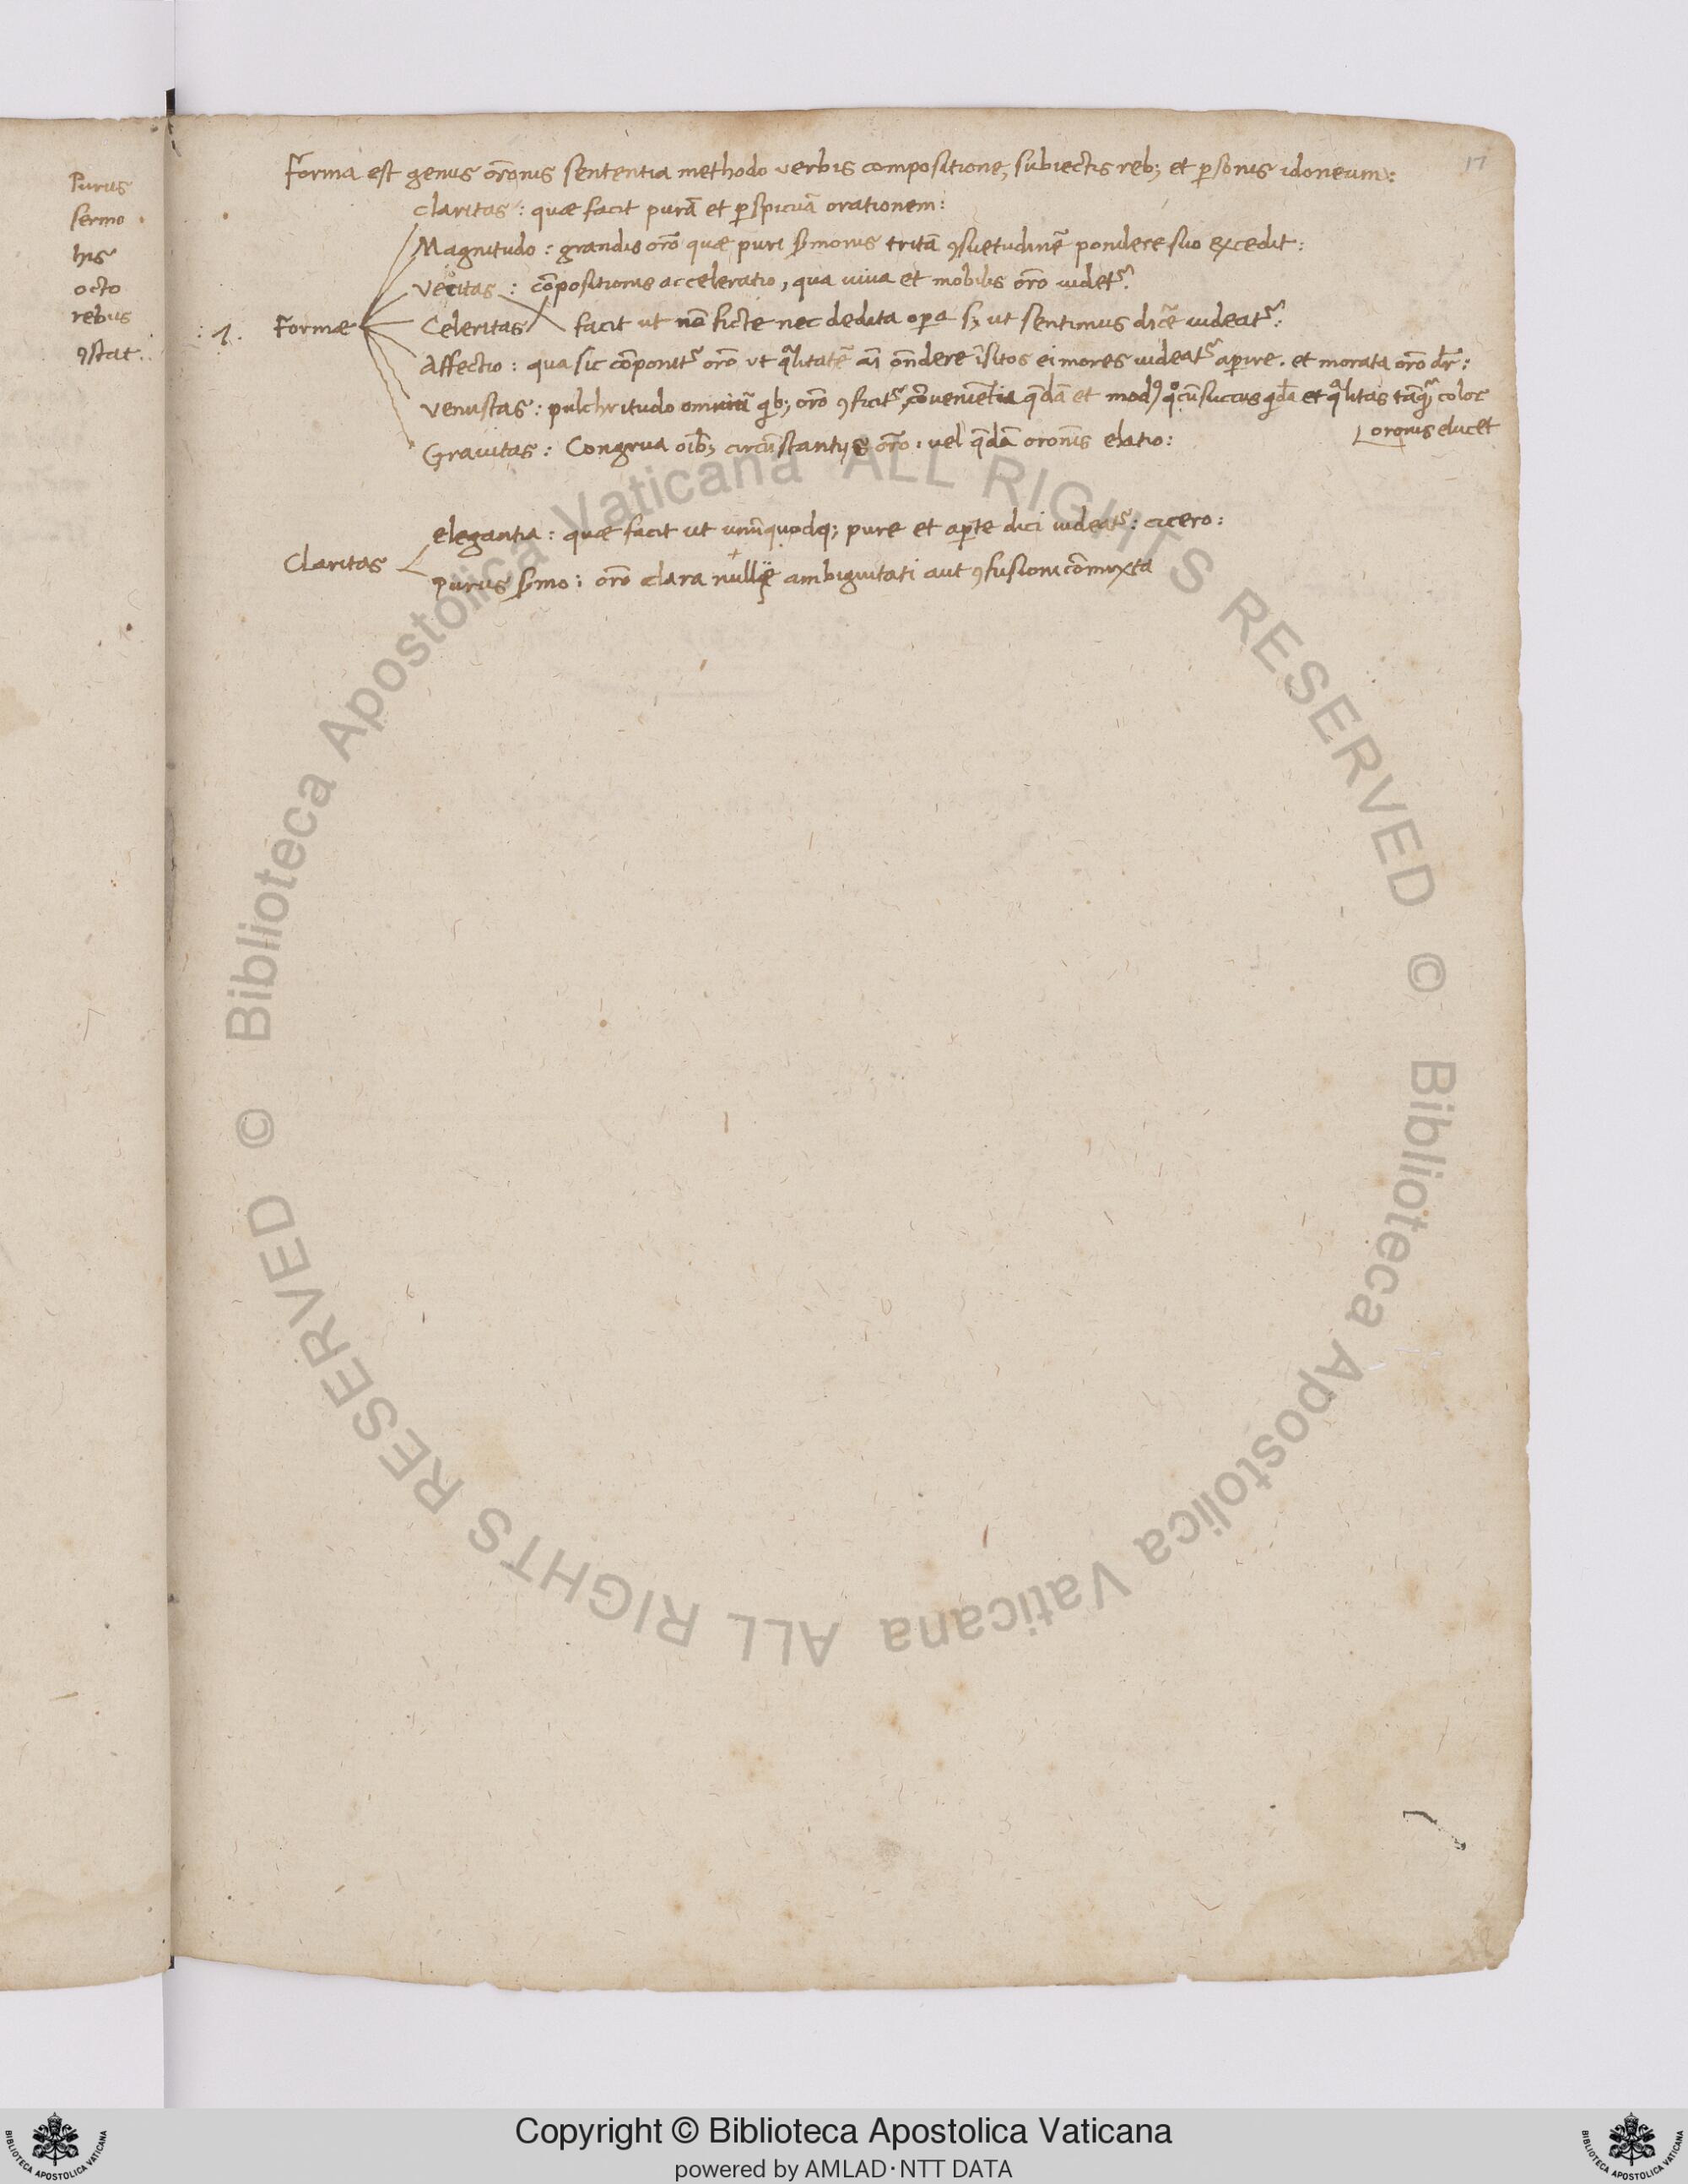 Purus
sermo .
his
octo
rebus
ꝯstat .
17
Forma est genus orōnis sententia methodo verbis compositione, subiectis reb; et ꝑsonis idoneum :
Claritas : quæ facit purā et ꝑspicuā orationem :
Magnitudo : grandis orō quæ puri sr̄monis tritā ꝯsuetudinē pondere suo excedit :
Veritas : cōpositionis acceleratio, qua uiua et mobilis orō uidetᷣ :
: 1. Formæ Celeritas facit ut nō ficte nec dedita oꝑa s; ut sentimus dicē uideatᷣ :
Affectio : qua sic cōponitᷣ orō ut qͣlitatē aī oñdere īsitos ei mores uideatᷣ aꝑire . et morata orō dr̄ :
Venustas : pulchritudo omniū qͥb; orō ꝯficitᷣ, cōueniētia qͣdā et modꝰ qͦcū succus qͥdā et qͣlitas tāqͣ color
orōnis elucet
Grauitas : Congrua oīb; circūstantijs orō : uel qͣdā orōnis elatio :
elegantia : quæ facit ut unūquodq; pure et aꝑte dici uideatᷣ : cicero :
Claritas
Purus sr̄mo : orō clara nullæ ambiguitati aut ꝯfusioni cōmixta
© Biblioteca Apostolica Vaticana ALL RIGHTS RESERVED
© Biblioteca Apostolica Vaticana ALL RIGHTS RESERVED
Copyright © Biblioteca Apostolica Vaticana
powered by AMLAD·NTT DATA
BIBLIOTECA APOSTOLICA VATICANA
BIBLIOTECA APOSTOLICA VATICANA